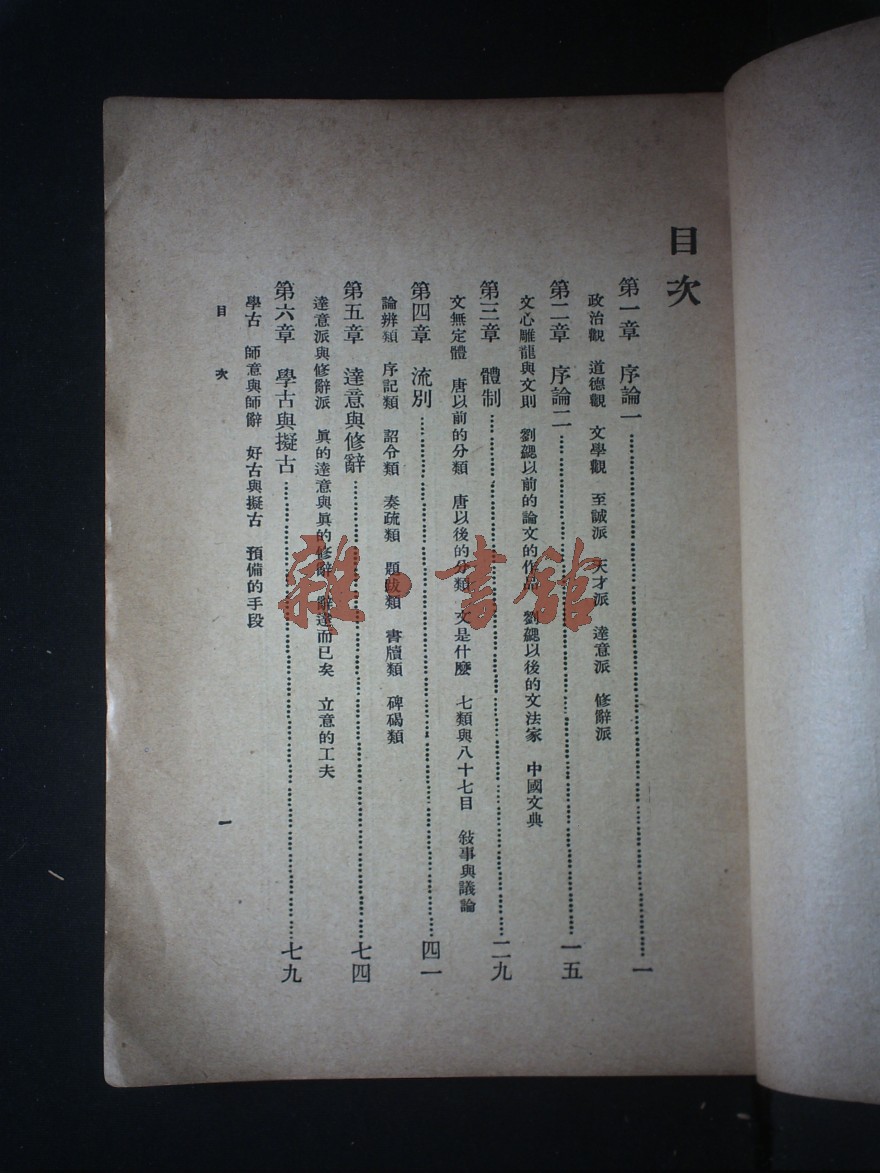 目次
第一章　序論一……一
政治觀　道德觀　文學觀　至誠派　天才派　達意派　修辭派
第二章　序論二……一五
文心雕龍與文則　劉勰以前的論文的作品　劉勰以後的文法家　中國文典
第三章　體制……二九
文無定體　唐以前的分類　唐以後的分類　文是什麼　七類與八十七目　敍事與議論
第四章　流別……四一
論辨類　序記類　詔令類　奏疏類　題跋類　書牘類　碑碣類
第五章　達意與修辭……七四
達意派與修辭派　眞的達意與眞的修辭　辭達而已矣　立意的工夫
第六章　學古與擬古……七九
學古　師意與師辭　好古與擬古　預備的手段
目次
一
雜·書館